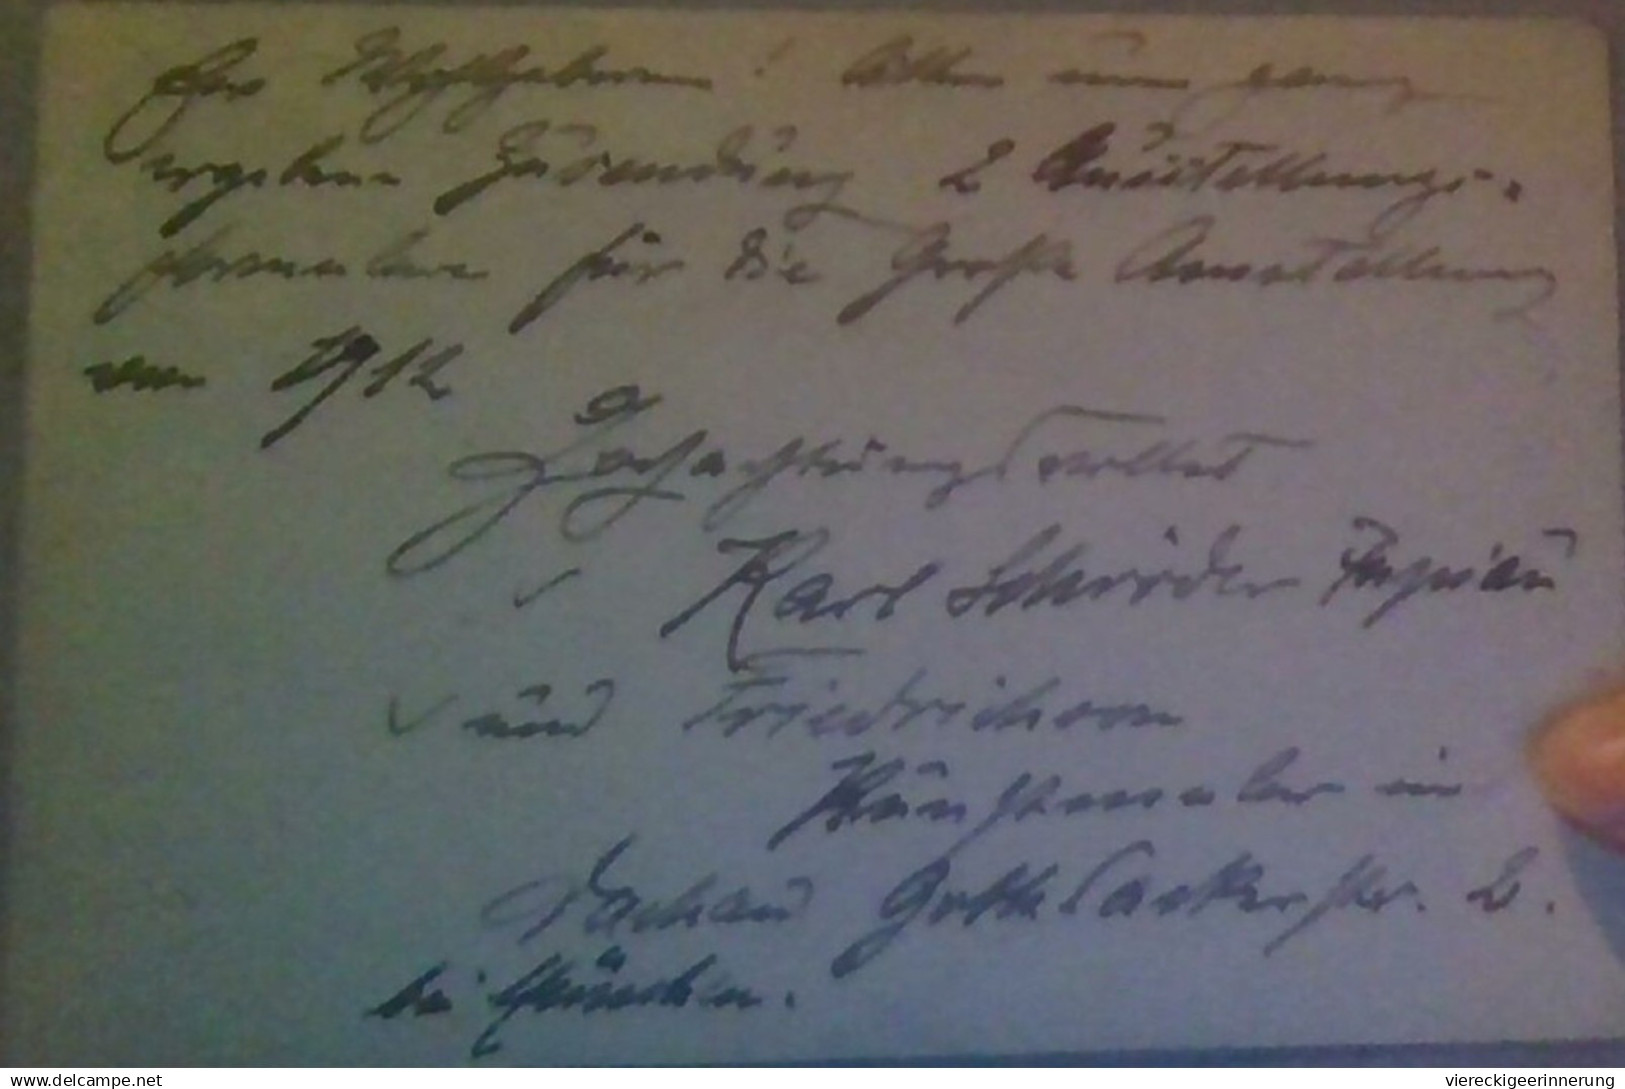 Euer Wohlgeboren! bitten um ganz
ergebene Zusendung 2 Ausstellungs-
formulare für die Große Ausstellung
von 1912
Hochachtungsvollst
Karl Schröder Tapiau
und Friedrichson
Kunstmaler in
Dachau Gottesackerstr. 2.
bei München.
www.delcampe.net
viereckigeerinnerung